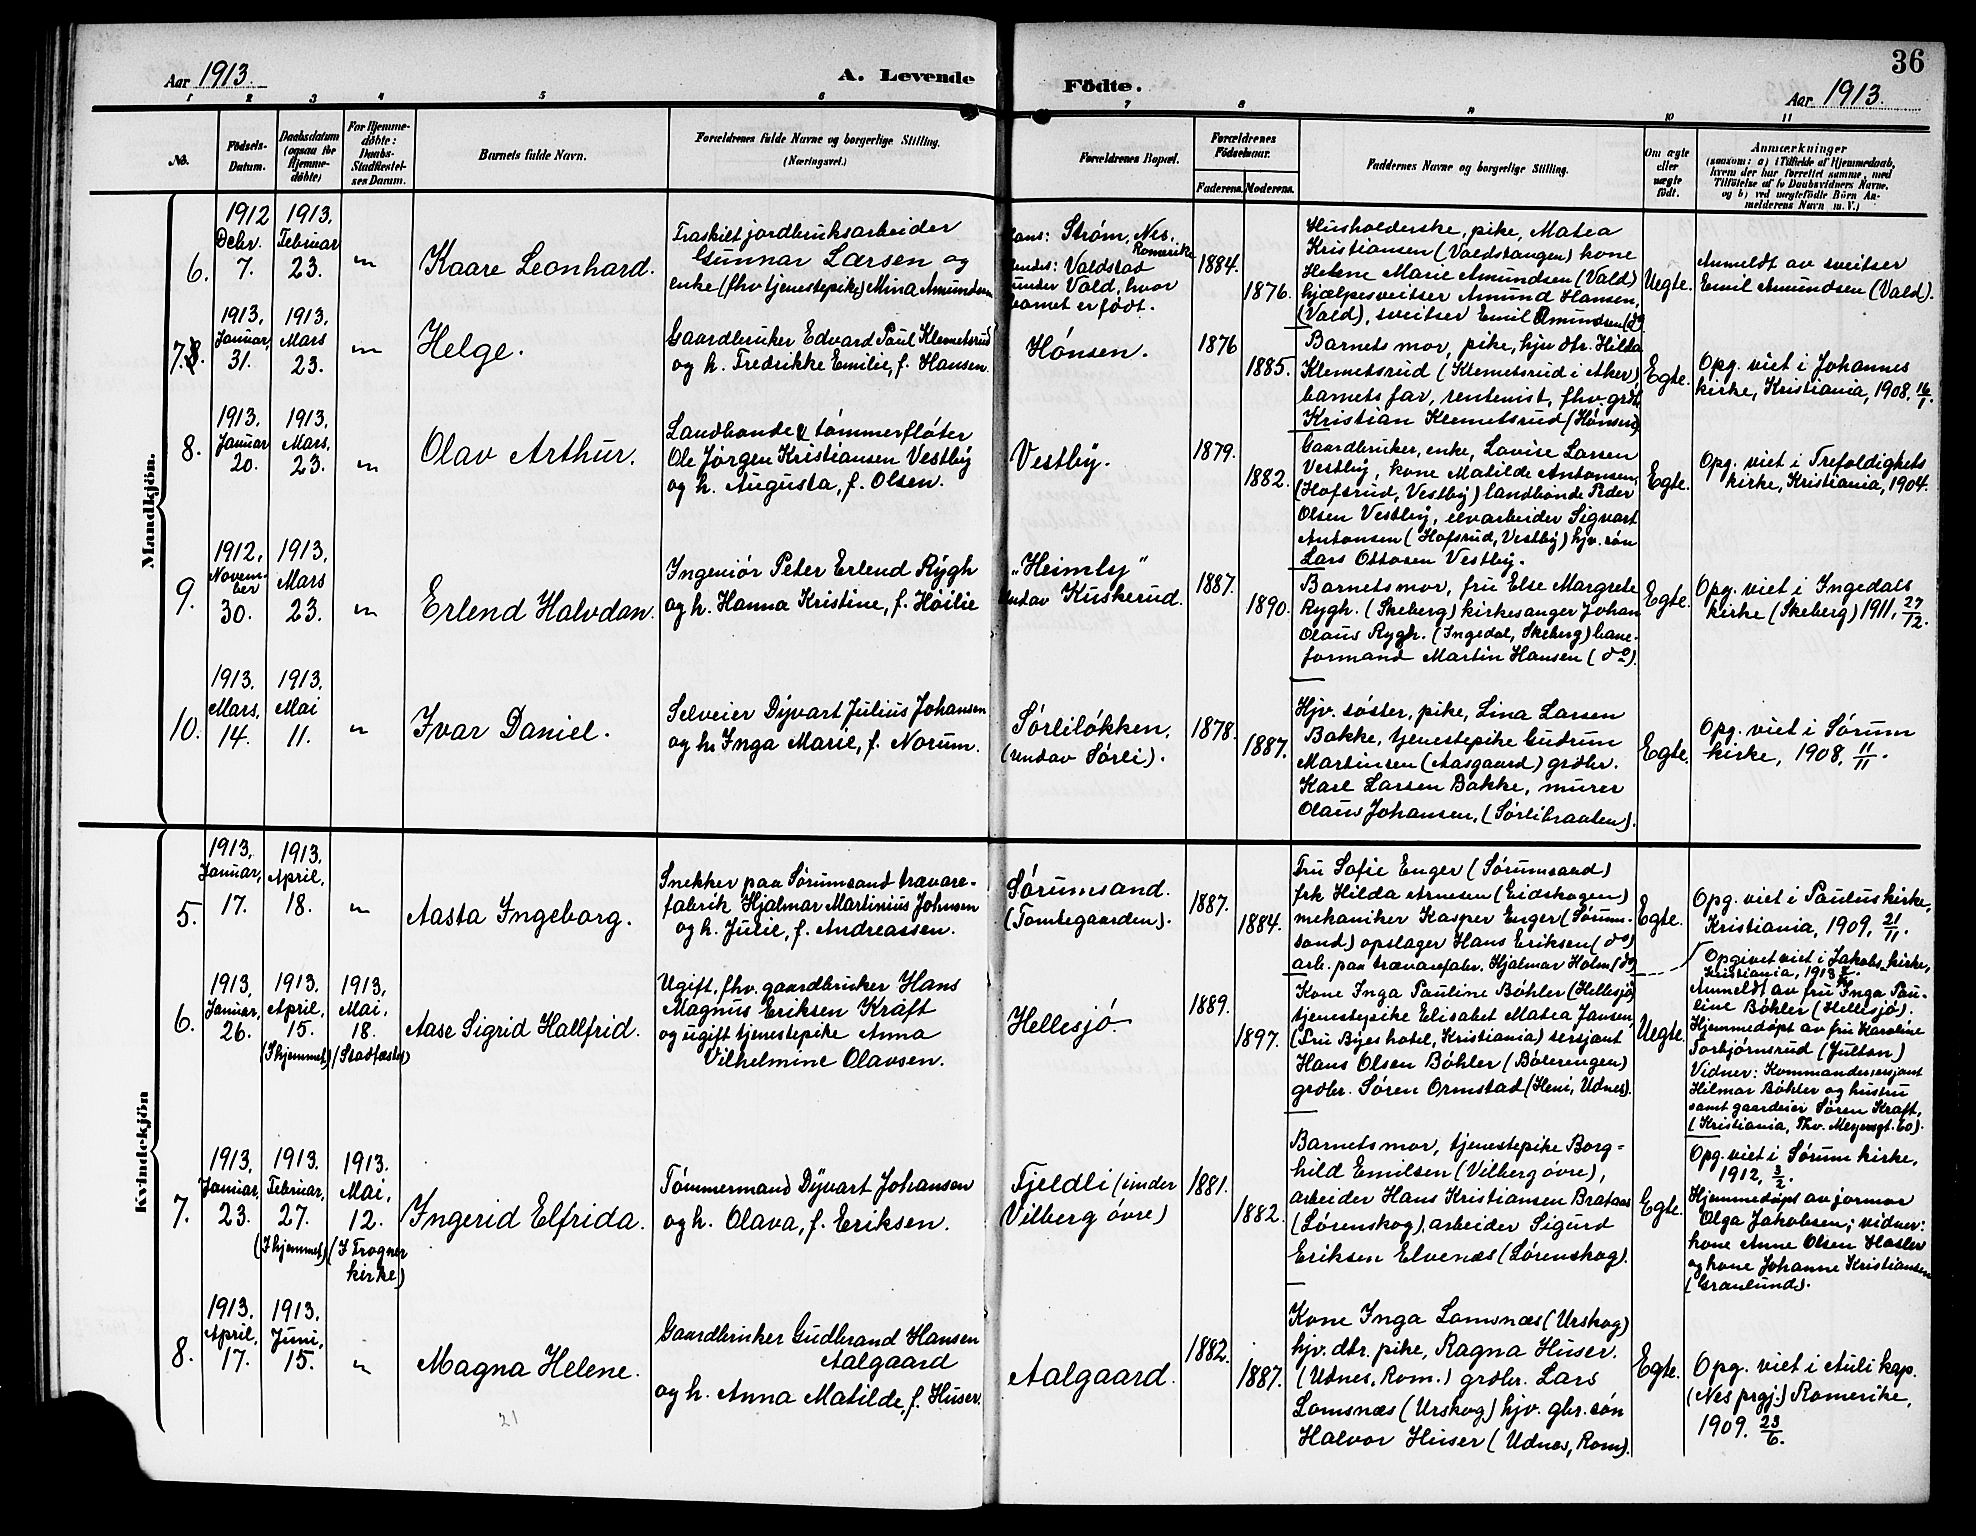 36
Aar 1913.
A. Levende
Födte.
Aar 1913.
1 2 3 4 5 6 7 8 9 10 11
No.
Födsels-
Datum.
Daabsdatum
(ogsaa for
Hjemme-
döbte)
For Hjemme-
døbte:
Daabs-
Stadfæstel-
ses Datum.
Barnets fulde Navn.
Forældrenes fulde Navne og borgerlige Stilling.
(Næringsvei.)
Forældrenes Bopæl.
Forældrenes
Födselsaar.
Faderens.
Moderens.
Faddernes Navne og borgerlige Stilling.
Om ægte
eller
uægte
födt.
Anmærkninger
(saasom: a) i Tilfælde af Hjemmedaab,
hvem der har forrettet samme, med
Tilföielse af to Daabsvidners Navne,
og b) ved uegtefödte Börn An-
melderens Navn m. V.)
Mandkjön.
6.
1912
Debr.
7.
1913.
Februar
23.
"
Kaare Leonhard.
Fraskilt jordbruksarbeider
Gunnar Larsen og
enke (fhv tjenestepike) Mina Amundsen
hans: Strøm, Nes,
Romerike
hendes: Valdstad
under Vald, hvor
barnet er født.
1884.
1876.
Husholderske, pike, Matea
Kristiansen (Valdstangen) kone
Helene Marie Amundsen (Vald)
hjælpesveitser Amund Hansen,
(Vald), sveitser Emil Amundsen (do)
Uegte.
Anmeldt av sveitser
Emil Amundsen (Vald).
7.
1913.
Januar,
31.
1913.
Mars
23.
"
Helge.
Gaardbruker Edvard Paul Klemetsrud
og h. Fredrikke Emilie, f. Hansen.
Hønsen.
1876
1885.
Barnets mor, pike, hjv dtr. Hilda
Klemetsrud (Klemetsrud i Aker),
barnets far, rentenist, fhv. grdbr.
Kristian Klemetsrud (Hønsen)
Egte.
Opg. viet i Johannes
kirke, Kristiania, 1908, 16/1.
8.
1913.
Januar
20.
1913.
Mars.
23.
"
Olav Arthur.
Landhonde & tømmerfløter
Ole Jørgen Kristiansen Vestby
og h. Augusta, f. Olsen.
Vestby.
1879.
1882.
Gaardbruker, enke, Lovise Larsen
Vestby, kone Matilde Antonsen,
(Hofsrud, Vestby) landhonde Peder
Olsen Vestby, elvarbeider Sigvart
Antonsen (Hofsrud, Vestby) hjv. søn
Lars Ottosen Vestby.
Egte.
Opg. viet i Trefoldighets
kirke, Kristiania, 1904.
9.
1912.
Novem-
ber
30.
1913.
Mars
23.
"
Erlend Halvdan.
Ingeniør Peter Erlend Rygh
og h. Hanna Kristine, f. Høilie
„Heimly"
undav Kuskerud.
1887.
1890.
Barnets mor, fru Else Margrete
Rygh. (Skeberg) kirkesanger Johan
Olaus Rygh. (Ingedal, Skeberg) bane-
formand Martin Hansen (do).
Egte.
Opg. viet i Ingedals
kirke (Skeberg) 1911, 27/12.
10.
1913.
Mars,
14.
1913.
Mai
11.
"
Ivar Daniel.
Selveier Dyvart Julius Johansen
og h. Inga Marie, f. Norum.
Sørliløkken,
(undav Sørli).
1878.
1887.
Hjv. søster, pike, Lina Larsen
Bakke, tjenestepike Gudrun
Martinsen (Aasgaard) grdbr.
Karl Larsen Bakke, murer
Olaus Johansen, (Sørlibraaten).
Egte.
Opg. viet i Sørum
kirke, 1908, 11/11.
Kvindekjön
5.
1913.
Januar,
17.
1913.
April,
18.
"
Aasta Ingeborg.
Snekker paa Sørumsand travare-
fabrik Hjalmar Martinius Johnsen
og h. Julie, f. Andreassen.
Sørumsand.
(Tomtegaarden).
1887.
1884.
Fru Sofie Enger (Sørumsand)
frk Hilda Arnesen (Eidskogen)
mekaniker Kasper Enger (Sørum-
sand) opslager Hans Eriksen (do)
arb. paa trævarefabr. Hjalmar Holm (do)
Egte.
Opg. viet i Paulus kirke,
Kristiania, 1909, 21/11.
6.
1913.
Januar,
26.
1913.
April,
15.
(I hjemmet)
1913.
Mai,
18.
(Stadfæstet)
Aase Sigrid Hallfrid.
Ugift, fhv. gaardbruker Hans
Magnus Eriksen Kraft
og ugift tjenestepike Anna
Vilhelmine Olavsen.
Hellesjø.
1889.
1897.
Kone Inga Pauline Bøhler (Hellesjø)
tjenestepike Elisabet Matea Jansen,
(Fru Byes hotel, Kristiania) sersjant
Hans Olsen Bøhler (Bøteringen)
grdbr. Søren Ormstad (Heni, Udnes).
Uegte.
Opgivet viet i Jakobs kirke,
Kristiania, 1913
Anmeldt av fru Inga Pau-
line Bøhler (Hellesjø).
Hjemmedøpt av fru Karoline
Torbjørnsrud (Julton)
Vidner: Kommandersersjant
Hilmar Bøhler og hustru
samt gaardeier Søren Kraft,
(Kristiania, Thv. Meyersgt. 60).
7.
1913,
Januar,
23.
1913.
Februar,
27.
(I hjemmet)
1913.
Mai,
12.
(I Frogner
kirke)
Ingerid Elfrida.
Tømmermand Dyvart Johansen
og h. Olava, f. Eriksen.
Fjeldli (under
Vilberg øvre)
1881.
1882.
Barnets mor, tjenestepike Borg-
hild Emilsen (Vilberg øvre),
arbeider Hans Kristiansen Brataas
(Lørenskog), arbeider Sigurd
Eriksen Elvenæs (Lørenskog).
Egte.
Opg. viet i Sørum kirke,
1912, 3/2.
Hjemmedøpt av jormor
Olga Jakobsen; vidner:
kone Anne Olsen Hasler
og kone Johanne Kristiansen
(Granlund).
8.
1913.
April,
17.
1913.
Juni,
15.
"
Magna Helene.
Gaardbruker Gudbrand Hansen
Aalgaard
og h. Anna Matilde, f. Huser.
Aalgaard.
1882.
1887.
Kone Inga Lomsnæs (Urskog)
hjv. dtr. pike, Ragna Huser.
(Udnes, Rom.) grdbr. Lars
Lomsnæs (Urskog) hjv. gbr. søn
Halvor Huser (Udnes, Rom).
Egte.
Opg. viet i Auli kap.
(Nes prgj.) Romerike,
1909. 23/6.
21